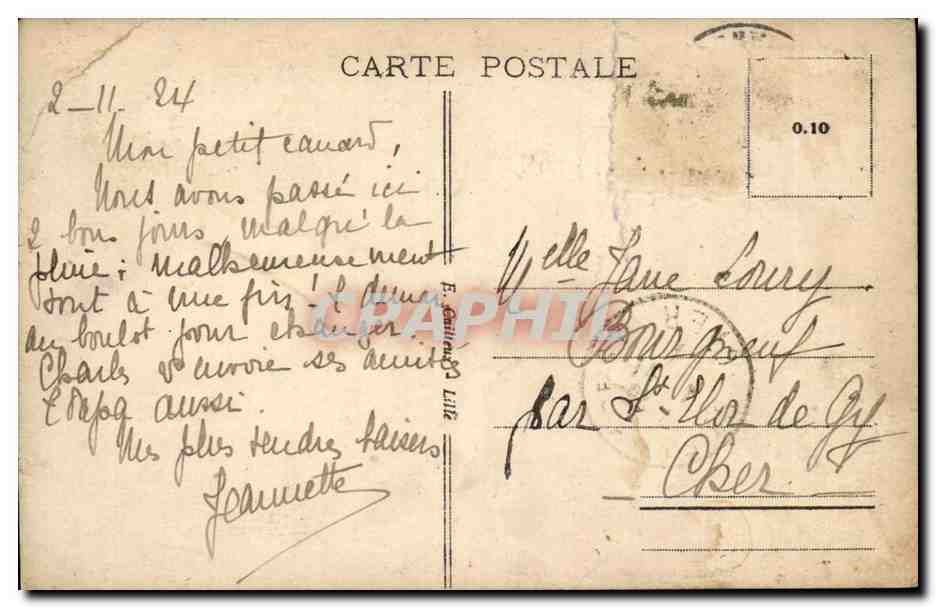 CARTE POSTALE
0.10
2-11-24
Mon petit canard,
Nous avons passé ici
2 bons jours malgré la
pluie; malheureusement
tout à une fin! & demain
au boulot pour changer.
Charles envoie ses amitiés
Papa aussi.
Mes plus tendres baisers
Jeannette
E. Cailleux Lille
Melle Jane Loury
Bourgneuf
par St-Flor de Gy
Cher
CRAPHIL